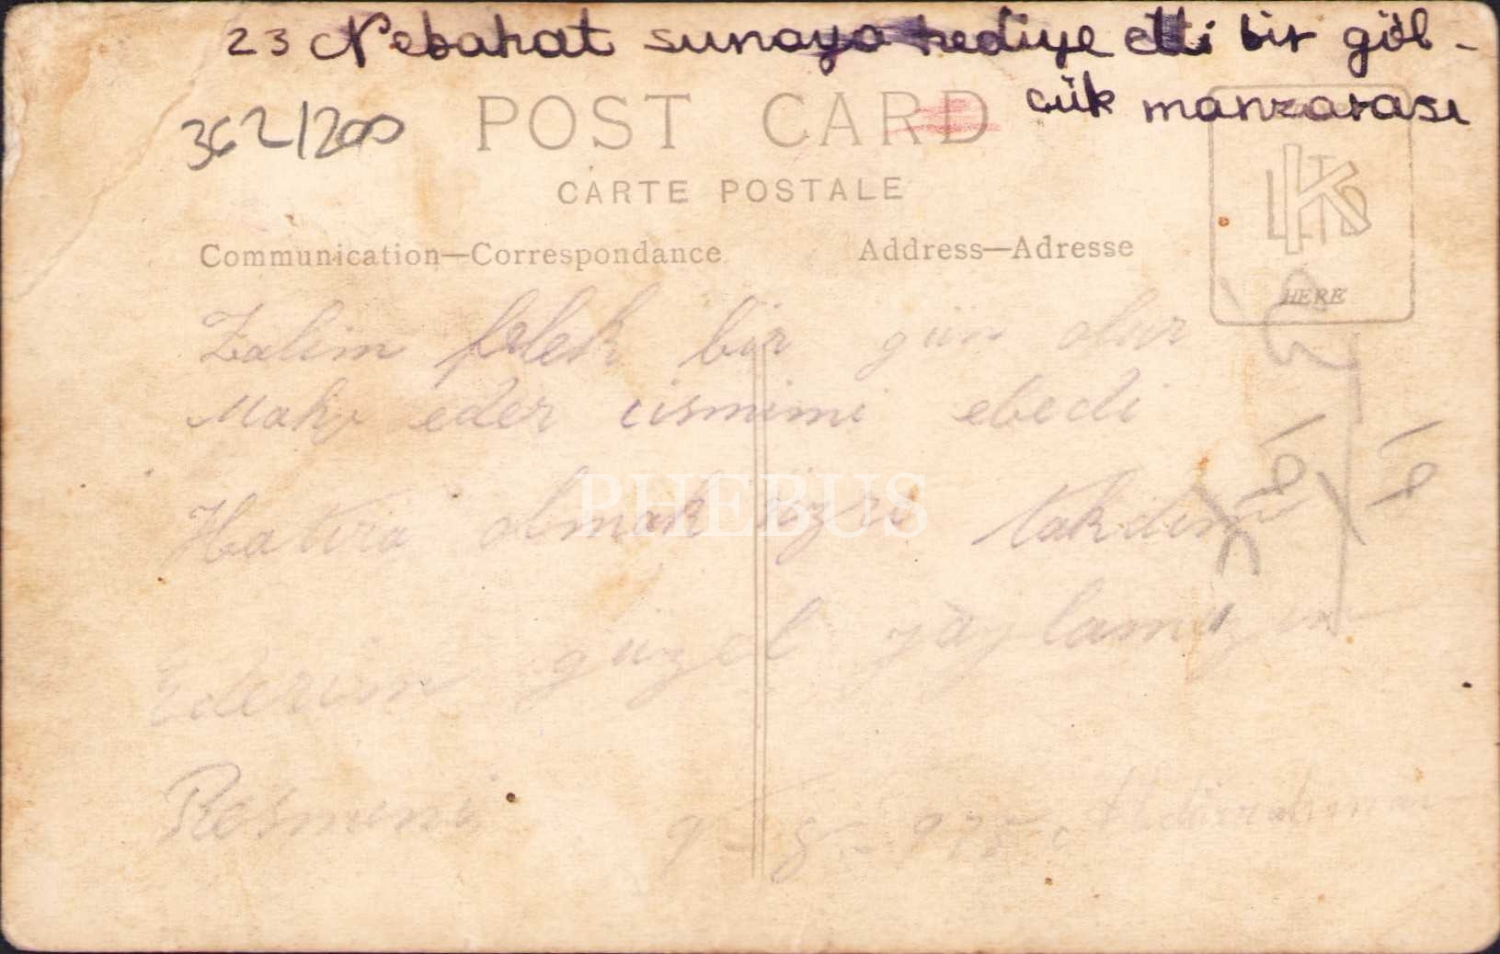 23 Nebahat sunaya hediye etti bir göl-
cük manzarası
362/200
POST CARD
CARTE POSTALE
Communication—Correspondance
Address—Adresse
HERE
Zalim felek bir gün olur
Mahv eder cismimi ebedi
Hatıra olmak üzre takdim
Ederim güzel yaylamızın
Resmini
9-8-935 Abdürrahman
PHEBUS